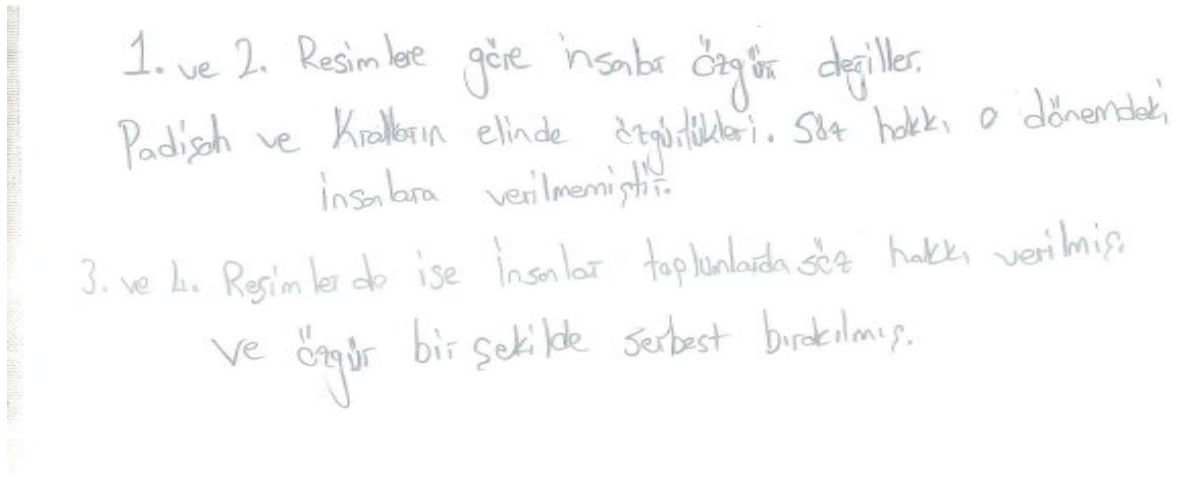 1. ve 2. Resimlere göre insanlar özgür değiller.
Padişah ve Kralların elinde özgürlükleri. Söz hakkı o dönemdeki
insanlara verilmemiştir.
3. ve 4. Resimlerde ise İnsanlar toplumlarda söz hakkı verilmiş.
ve özgür bir şekilde serbest bırakılmış.